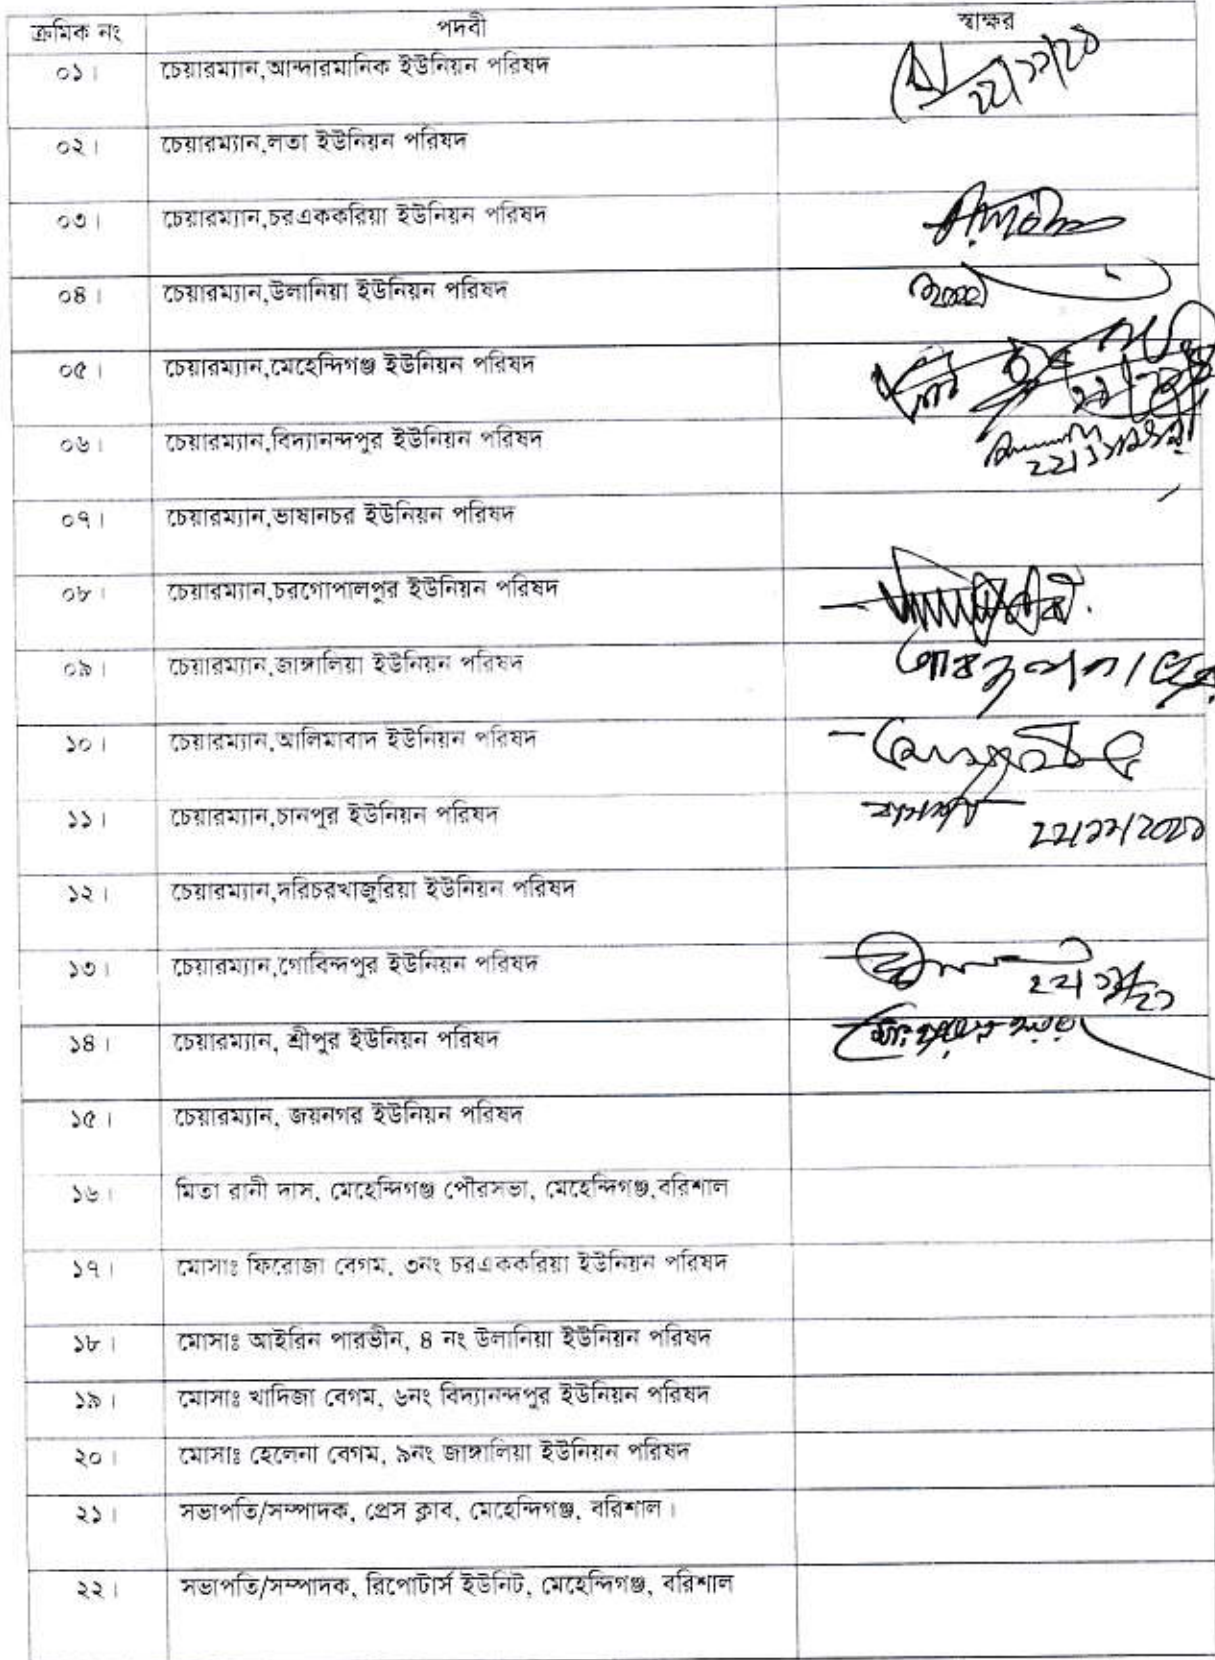 ক্রমিক নং পদবী স্বাক্ষর
০১। চেয়ারম্যান,আন্দারমানিক ইউনিয়ন পরিষদ
০২। চেয়ারম্যান,লতা ইউনিয়ন পরিষদ
০৩। চেয়ারম্যান,চরএককরিয়া ইউনিয়ন পরিষদ
০৪। চেয়ারম্যান,উলানিয়া ইউনিয়ন পরিষদ
০৫। চেয়ারম্যান,মেহেন্দিগঞ্জ ইউনিয়ন পরিষদ
০৬। চেয়ারম্যান,বিদ্যানন্দপুর ইউনিয়ন পরিষদ
০৭। চেয়ারম্যান,ভাষানচর ইউনিয়ন পরিষদ
০৮। চেয়ারম্যান,চরগোপালপুর ইউনিয়ন পরিষদ
০৯। চেয়ারম্যান,জাঙ্গালিয়া ইউনিয়ন পরিষদ
১০। চেয়ারম্যান,আলিমাবাদ ইউনিয়ন পরিষদ
১১। চেয়ারম্যান,চানপুর ইউনিয়ন পরিষদ
১২। চেয়ারম্যান,দরিচরখাজুরিয়া ইউনিয়ন পরিষদ
১৩। চেয়ারম্যান,গোবিন্দপুর ইউনিয়ন পরিষদ
১৪। চেয়ারম্যান, শ্রীপুর ইউনিয়ন পরিষদ
১৫। চেয়ারম্যান, জয়নগর ইউনিয়ন পরিষদ
১৬। মিতা রানী দাস, মেহেন্দিগঞ্জ পৌরসভা, মেহেন্দিগঞ্জ,বরিশাল
১৭। মোসাঃ ফিরোজা বেগম, ৩নং চরএককরিয়া ইউনিয়ন পরিষদ
১৮। মোসাঃ আইরিন পারভীন, ৪ নং উলানিয়া ইউনিয়ন পরিষদ
১৯। মোসাঃ খাদিজা বেগম, ৬নং বিদ্যানন্দপুর ইউনিয়ন পরিষদ
২০। মোসাঃ হেলেনা বেগম, ৯নং জাঙ্গালিয়া ইউনিয়ন পরিষদ
২১। সভাপতি/সম্পাদক, প্রেস ক্লাব, মেহেন্দিগঞ্জ, বরিশাল।
২২। সভাপতি/সম্পাদক, রিপোটার্স ইউনিট, মেহেন্দিগঞ্জ, বরিশাল